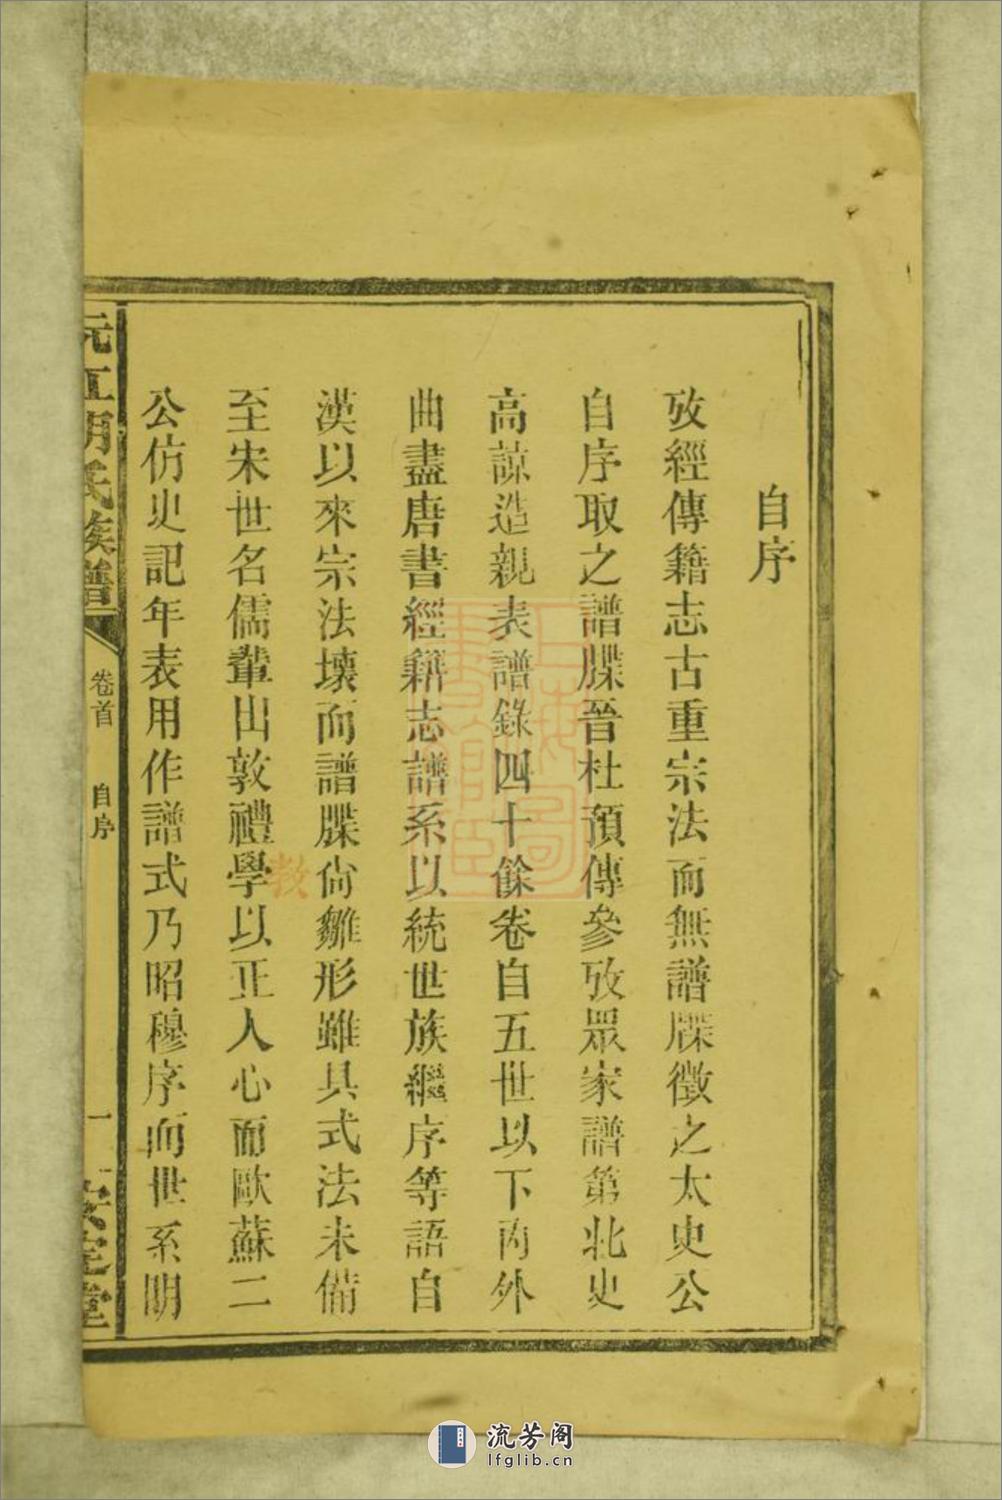 自序
攷經傳籍志古重宗法而無譜牒徵之太史公
自序取之譜牒晉杜預傳參攷眾家譜第北史
高諒造親表譜錄四十餘卷自五世以下內外
曲盡唐書經籍志譜系以統世族繼序等語自
漢以來宗法壞而譜牒尙雛形雖具式法未備
至宋世名儒輩出敦禮學以正人心而歐蘇二
教
公仿史記年表用作譜式乃昭穆序而世系明
沅江胡氏族譜
卷首
自序
一
安定堂
上海圖書館藏
流芳阁
lfglib.cn